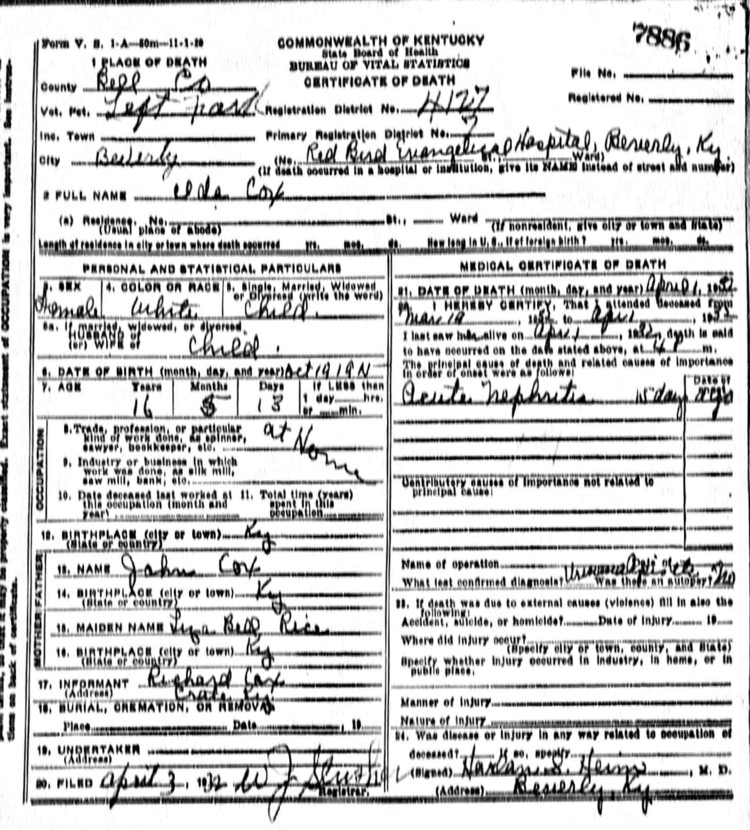 7886
Form V. S. 1-A—50m—11-1-30
COMMONWEALTH OF KENTUCKY
State Board of Health
BUREAU OF VITAL STATISTICS
CERTIFICATE OF DEATH
1 PLACE OF DEATH
File No.
County Bell Co
Registered No.
Vot. Pct. Left Fork Registration District No. 4127
Inc. Town Primary Registration District No.
City Beverly (No. Red Bird Evangelical Hospital, Beverly, Ky St., Ward)
(If death occurred in a hospital or institution, give its NAME instead of street and number)
2 FULL NAME Elda Cox
(a) Residence. No. St., Ward
(Usual place of abode) (If nonresident, give city or town and State)
Length of residence in city or town where death occurred yrs. mos. ds. How long in U. S., if of foreign birth? yrs. mos. ds.
PERSONAL AND STATISTICAL PARTICULARS
3. SEX 4. COLOR OR RACE 5. Single, Married, Widowed
or Divorced (write the word)
Female White Child
5a. If married, widowed, or divorced
HUSBAND of
(or) WIFE of Child.
6. DATE OF BIRTH (month, day, and year) Oct 19 19
7. AGE Years Months Days If LESS than
1 day hrs.
or min.
16 5 13
OCCUPATION
8. Trade, profession, or particular
kind of work done, as spinner,
sawyer, bookkeeper, etc. at Home
9. Industry or business in which
work was done, as silk mill,
saw mill, bank, etc.
10. Date deceased last worked at 11. Total time (years)
this occupation (month and spent in this
year) occupation
12. BIRTHPLACE (city or town) Ky
(State or country)
FATHER
13. NAME John Cox
14. BIRTHPLACE (city or town) Ky
(State or country)
MOTHER
15. MAIDEN NAME Liza Bell Rice
16. BIRTHPLACE (city or town) Ky
(State or country)
17. INFORMANT Richard Cox
(Address) Ky.
18. BURIAL, CREMATION, OR REMOVAL
Place Date , 19
19. UNDERTAKER
(Address)
20. FILED April 3, 1932 W J Slusher
Registrar.
MEDICAL CERTIFICATE OF DEATH
21. DATE OF DEATH (month, day, and year) April 1, 1932
22. I HEREBY CERTIFY, That I attended deceased from
Mar 19 1932 to Apr 1, 1932
I last saw her alive on April 1, 1932, death is said
to have occurred on the date stated above, at m.
The principal cause of death and related causes of importance
in order of onset were as follows:
Date of
Acute Nephritis 15 days
Contributory causes of importance not related to
principal cause:
Name of operation
What test confirmed diagnosis? Was there an autopsy? No
23. If death was due to external causes (violence) fill in also the
following:
Accident, suicide, or homicide? Date of injury 19
Where did injury occur?
(Specify city or town, county, and State)
Specify whether injury occurred in industry, in home, or in
public place.
Manner of injury
Nature of injury
24. Was disease or injury in any way related to occupation of
deceased? If so, specify
(Signed) Harlan S. Heim, M. D.
(Address) Beverly, Ky